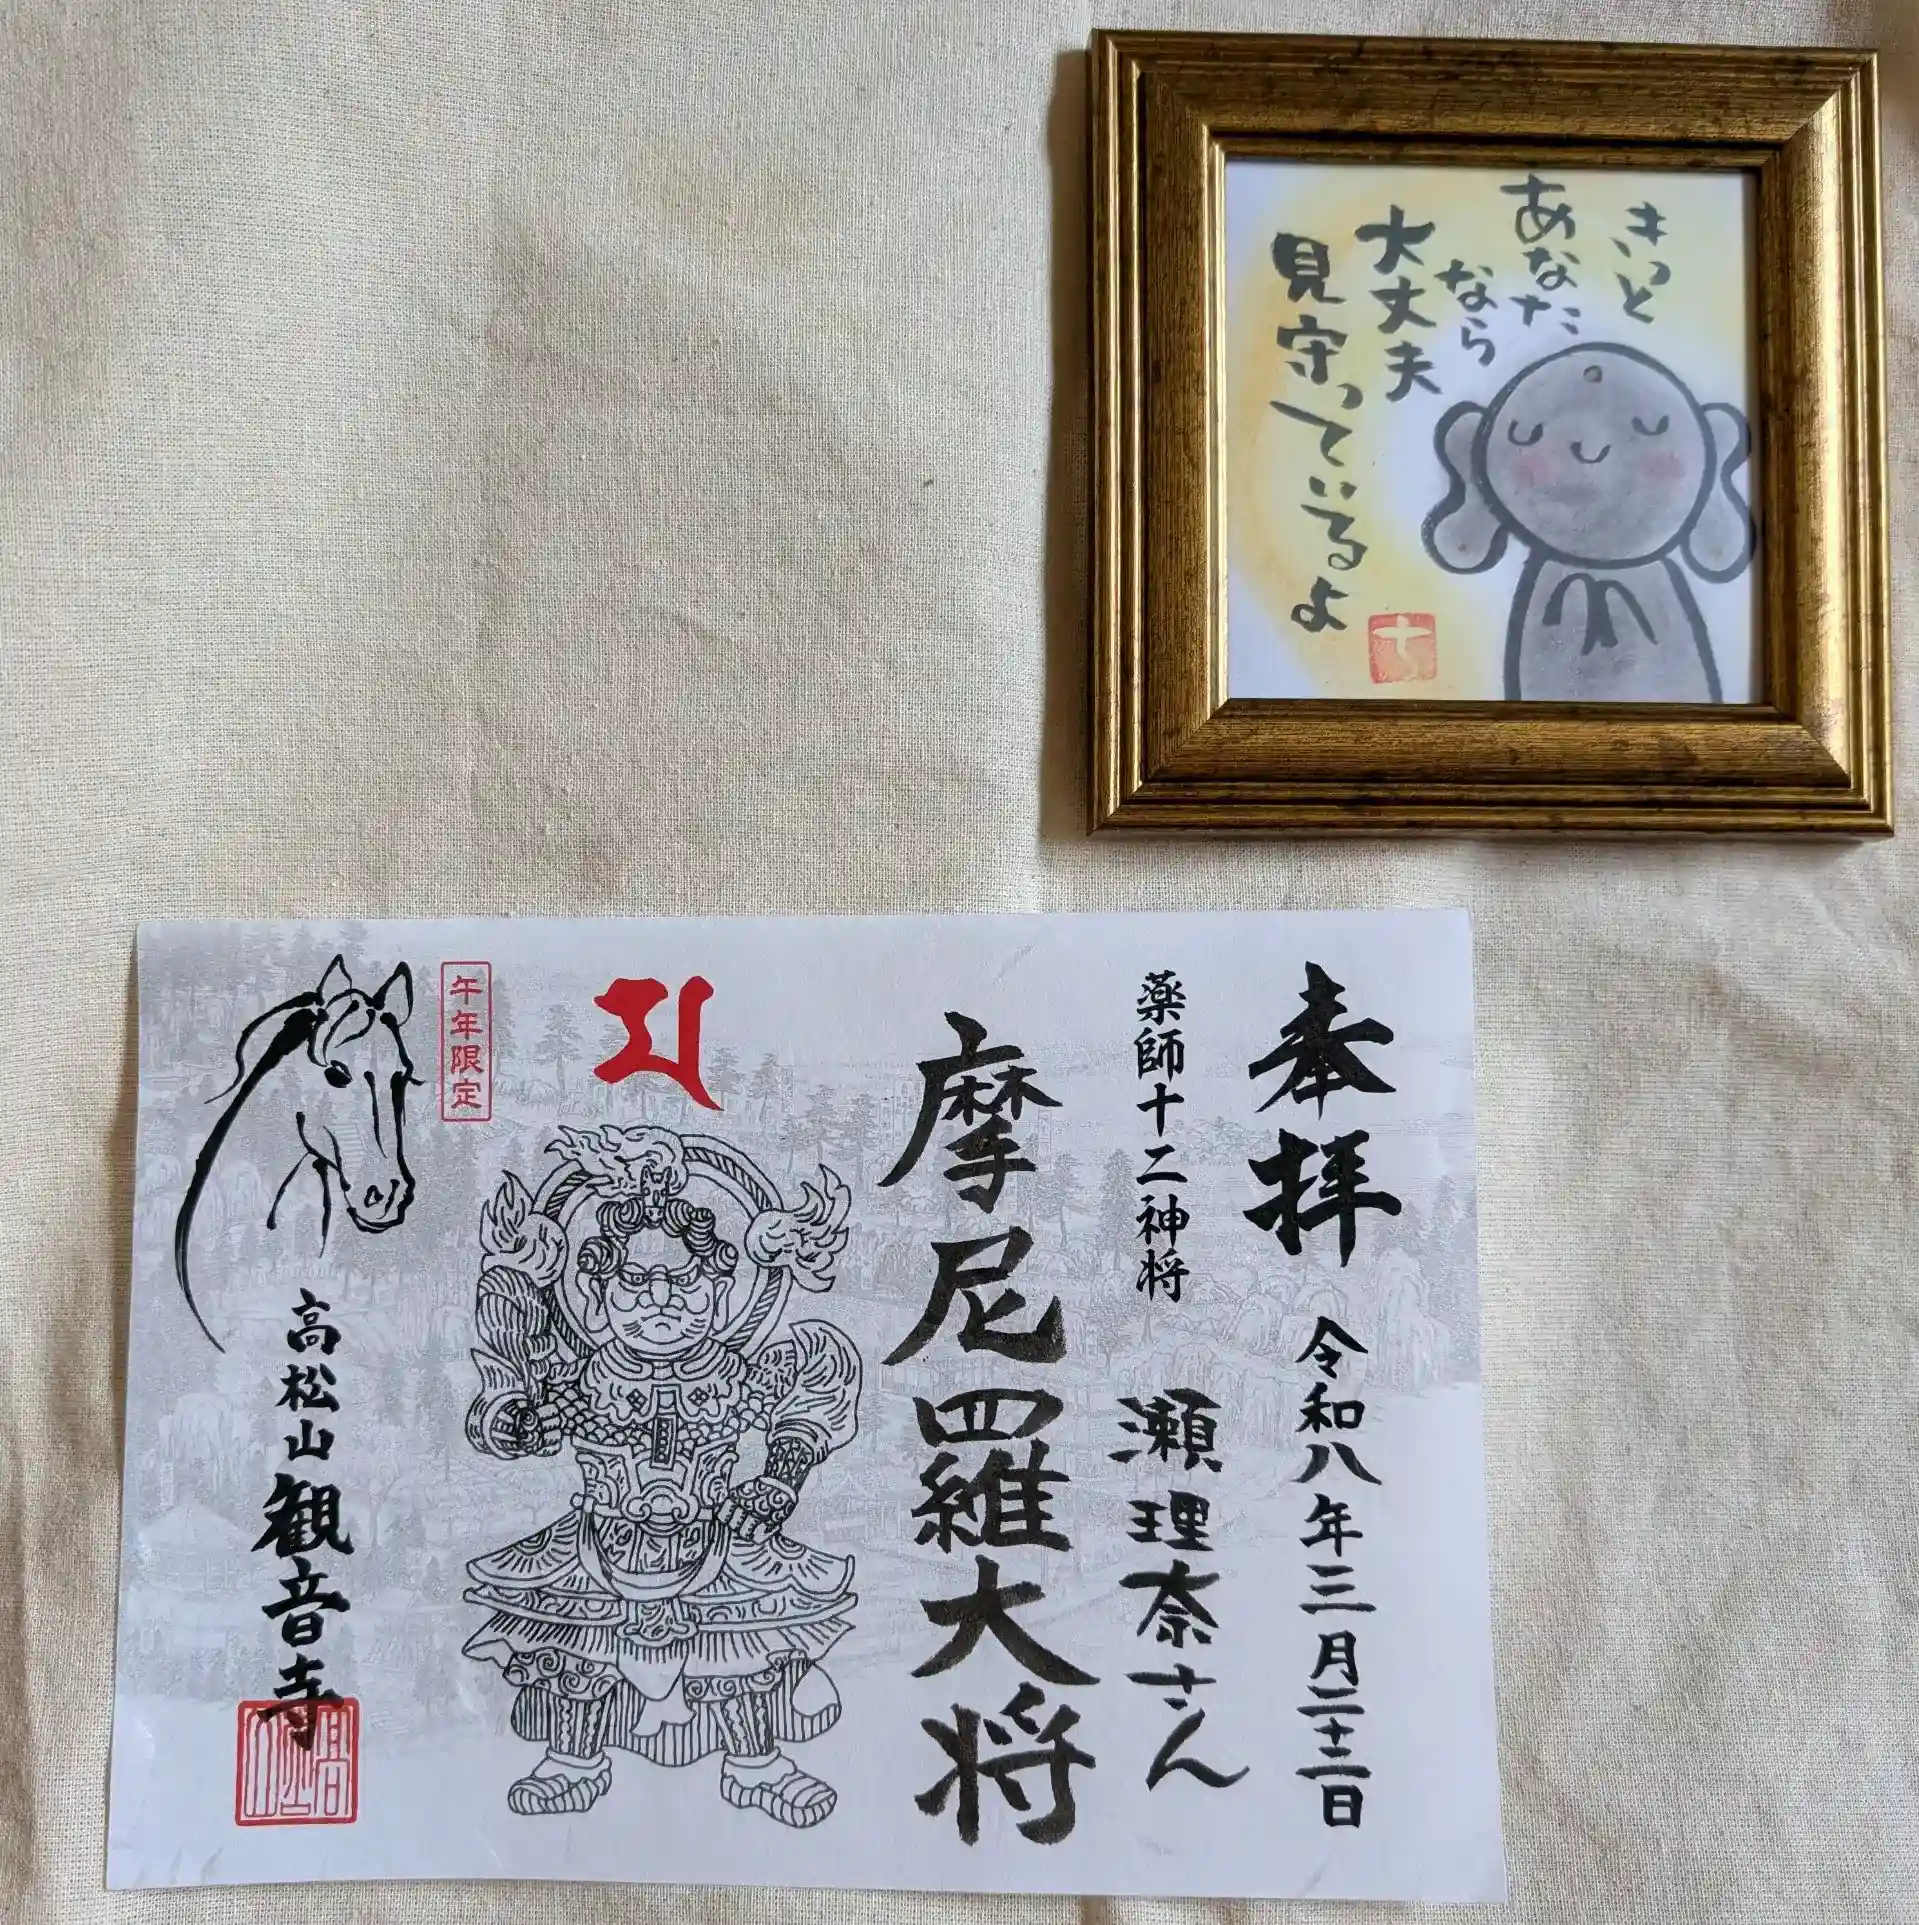 きっと
あなた
なら
大丈夫
見守っているよ
奉拝
令和八年三月二十二日
薬師十二神将
瀬理奈さん
摩尼羅大将
午年限定
高松山観音寺